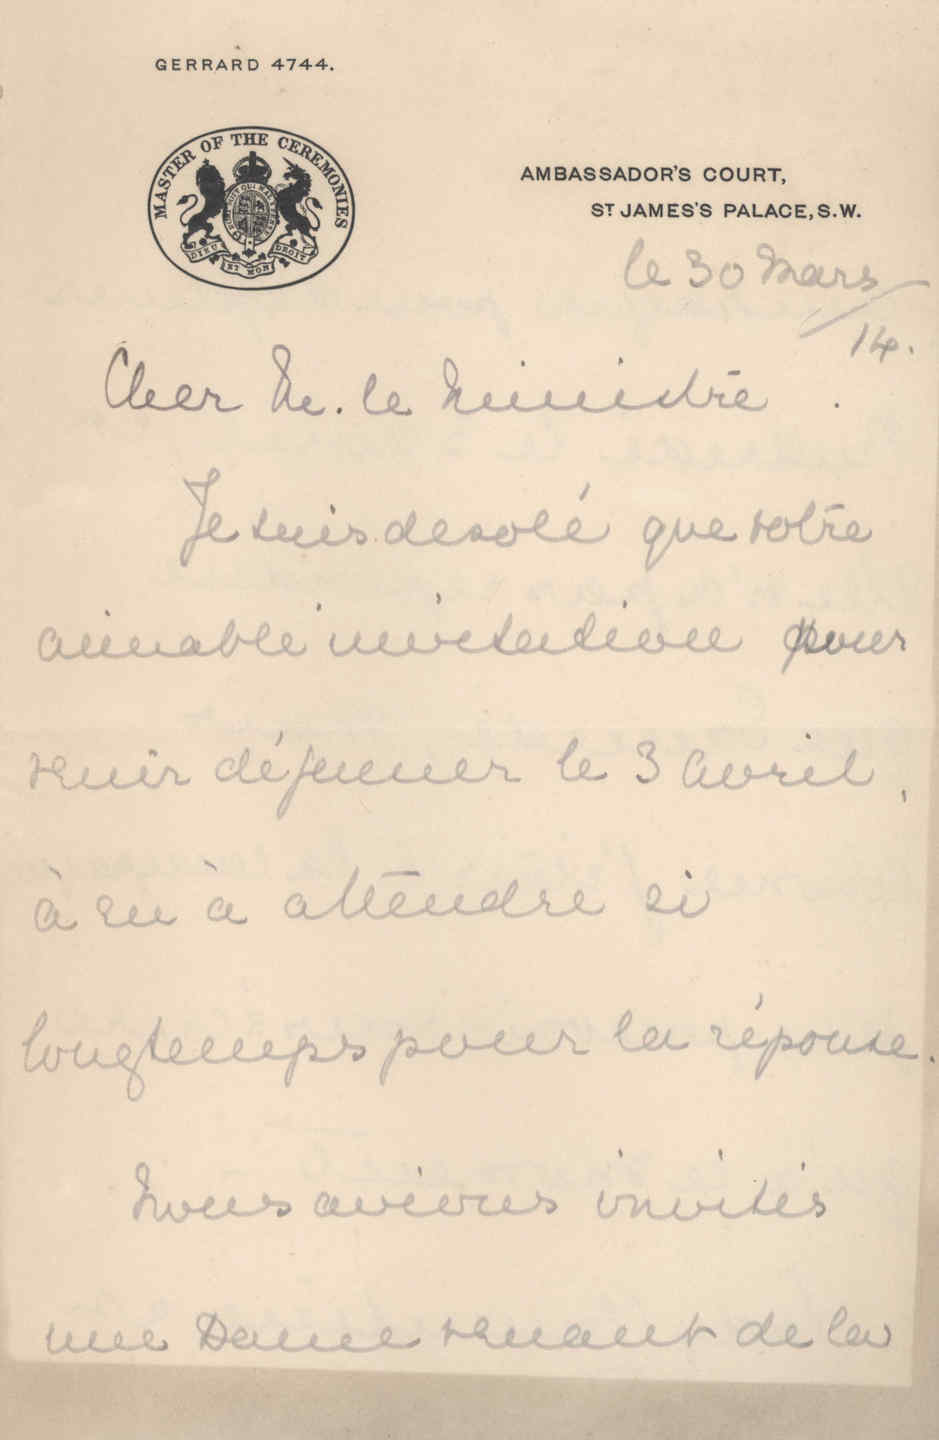 GERRARD 4744.
MASTER OF THE CEREMONIES
DIEU ET MON DROIT
AMBASSADOR'S COURT,
ST JAMES'S PALACE, S.W.
le 30 Mars
/14.
Cher M. le Ministre.
Je suis desolé que votre
aimable invitation pour
venir déjeuner le 3 Avril,
à eu à attendre si
longtemps pour la réponse.
Nous avions invités
une Dame venant de la